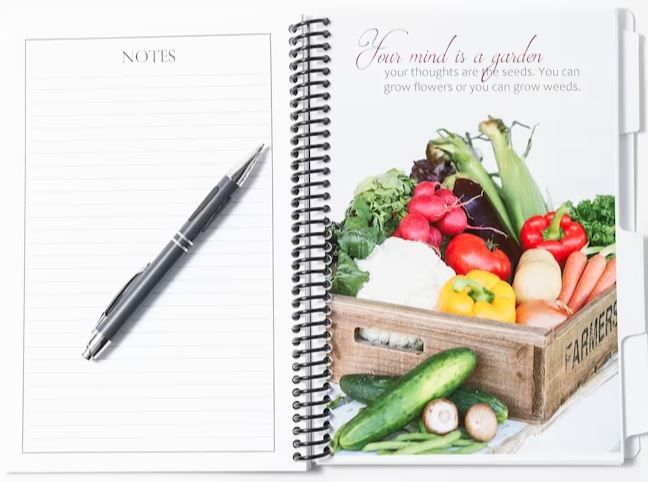 NOTES
Your mind is a garden
your thoughts are the seeds. You can
grow flowers or you can grow weeds.
FARMERS